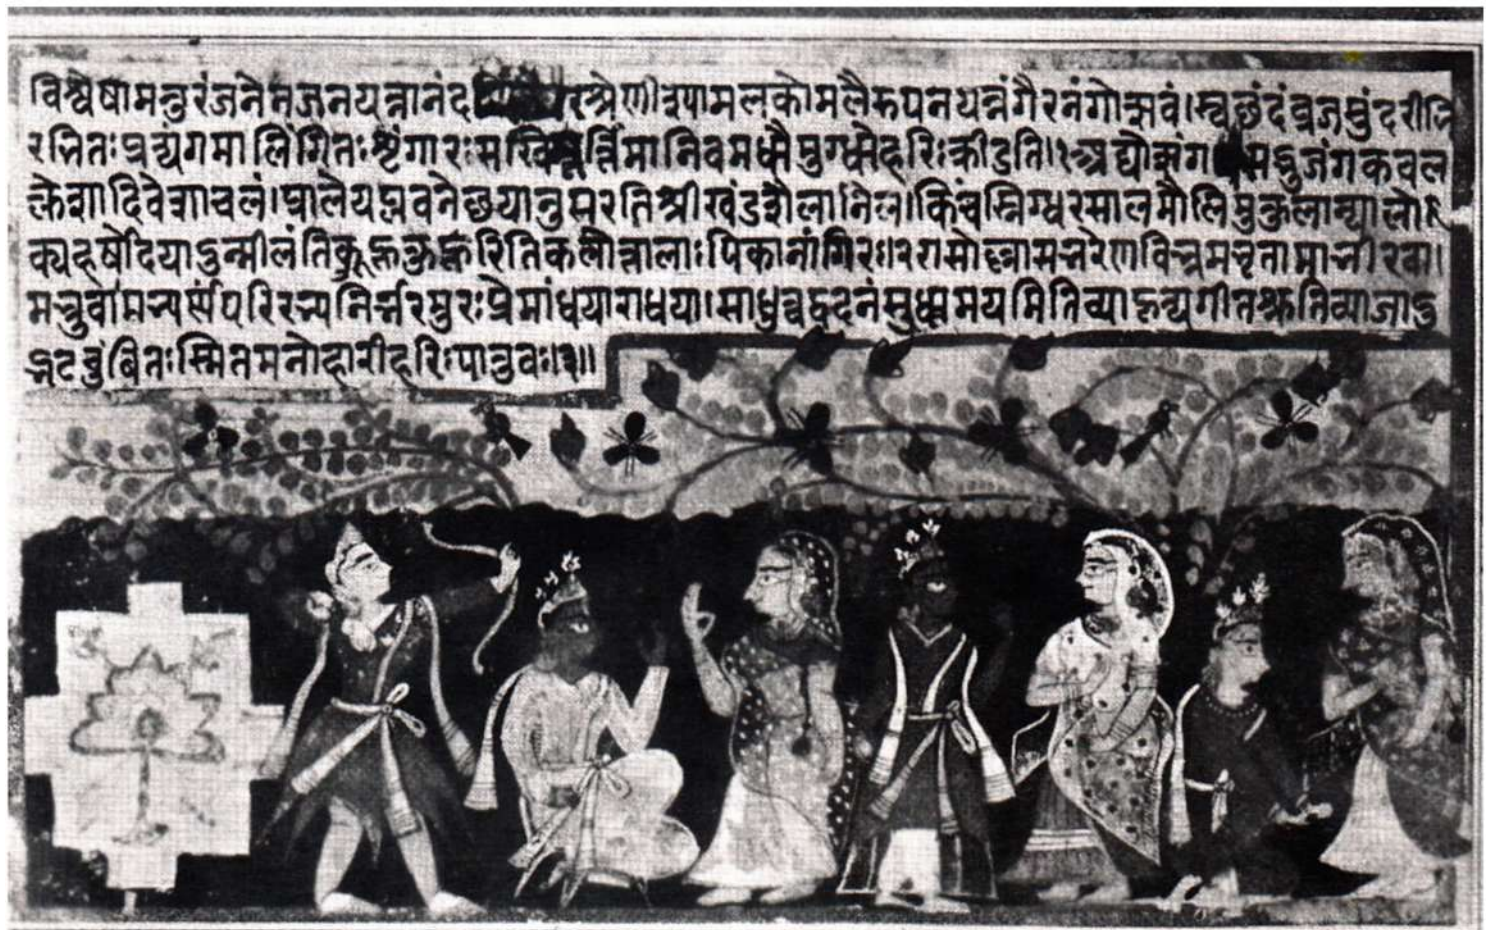 विश्वेषामनुरंजनेनजनयन्नानंद रश्रेणीश्यामलकोमलैरुपनयन्नंगैरनंगोत्सवं।स्वछंदंव्रजसुंदरीभि
रभितःप्रत्यंगमालिंगितःशृंगारःसखिमूर्त्तिमानिवमधौमुग्धोहरिःक्रीडति॥१अद्योत्संग सद्भुजंगकवल
क्लेशादिवेशाचलं।प्रालेयप्लवनेछयानुसरतिश्रीखंडशैलानिलः।किंचस्निग्धरसालमौलिमुकुलान्यालो
क्यहर्षोदयादुन्मीलंतिकुहूःकुहूरितिकलोत्तालाःपिकानांगिरः॥२रासोल्लासभरेणविभ्रमभृतामाभीरवा।
मभ्रुवामभ्यर्णेपरिरभ्यनिर्भरमुरःप्रेमांधयाराधया।साधुत्वद्वदनंसुधामयमितिव्याहृत्यगीतस्तुतिव्याजादु
द्भटचुंबितःस्मितमनोहारीहरिःपातुवः॥३॥